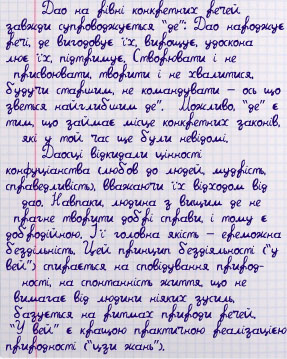 Дао на рівні конкретних речей
завжди супроводжується "де": Дао народжує
речі, де вигодовує їх, вирощує, удоскона
лює їх, підтримує. Створювати і не
присвоювати, творити і не хвалитися,
будучи старшим, не командувати - ось що
зветься найглибшим де". Можливо, "де" є
тим, що займає місце конкретних законів,
які у той час ще були невідомі.
Даосці відкидали цінності
конфуціанства (любов до людей, мудрість,
справедливість), вважаючи їх відходом від
дао. Навпаки, людина з вищим де не
прагне творити добрі справи, і тому є
добродійною. Її головна якість -
бездільність. Цей принцип бездіяльності ("у
вей") спирається на сповідування природ-
ності, на спонтанність життя, що не
вимагає від людини ніяких зусиль,
базується на ритмах природи речей.
"У вей" є кращою практичною реалізацією
природності ("цзи жань").